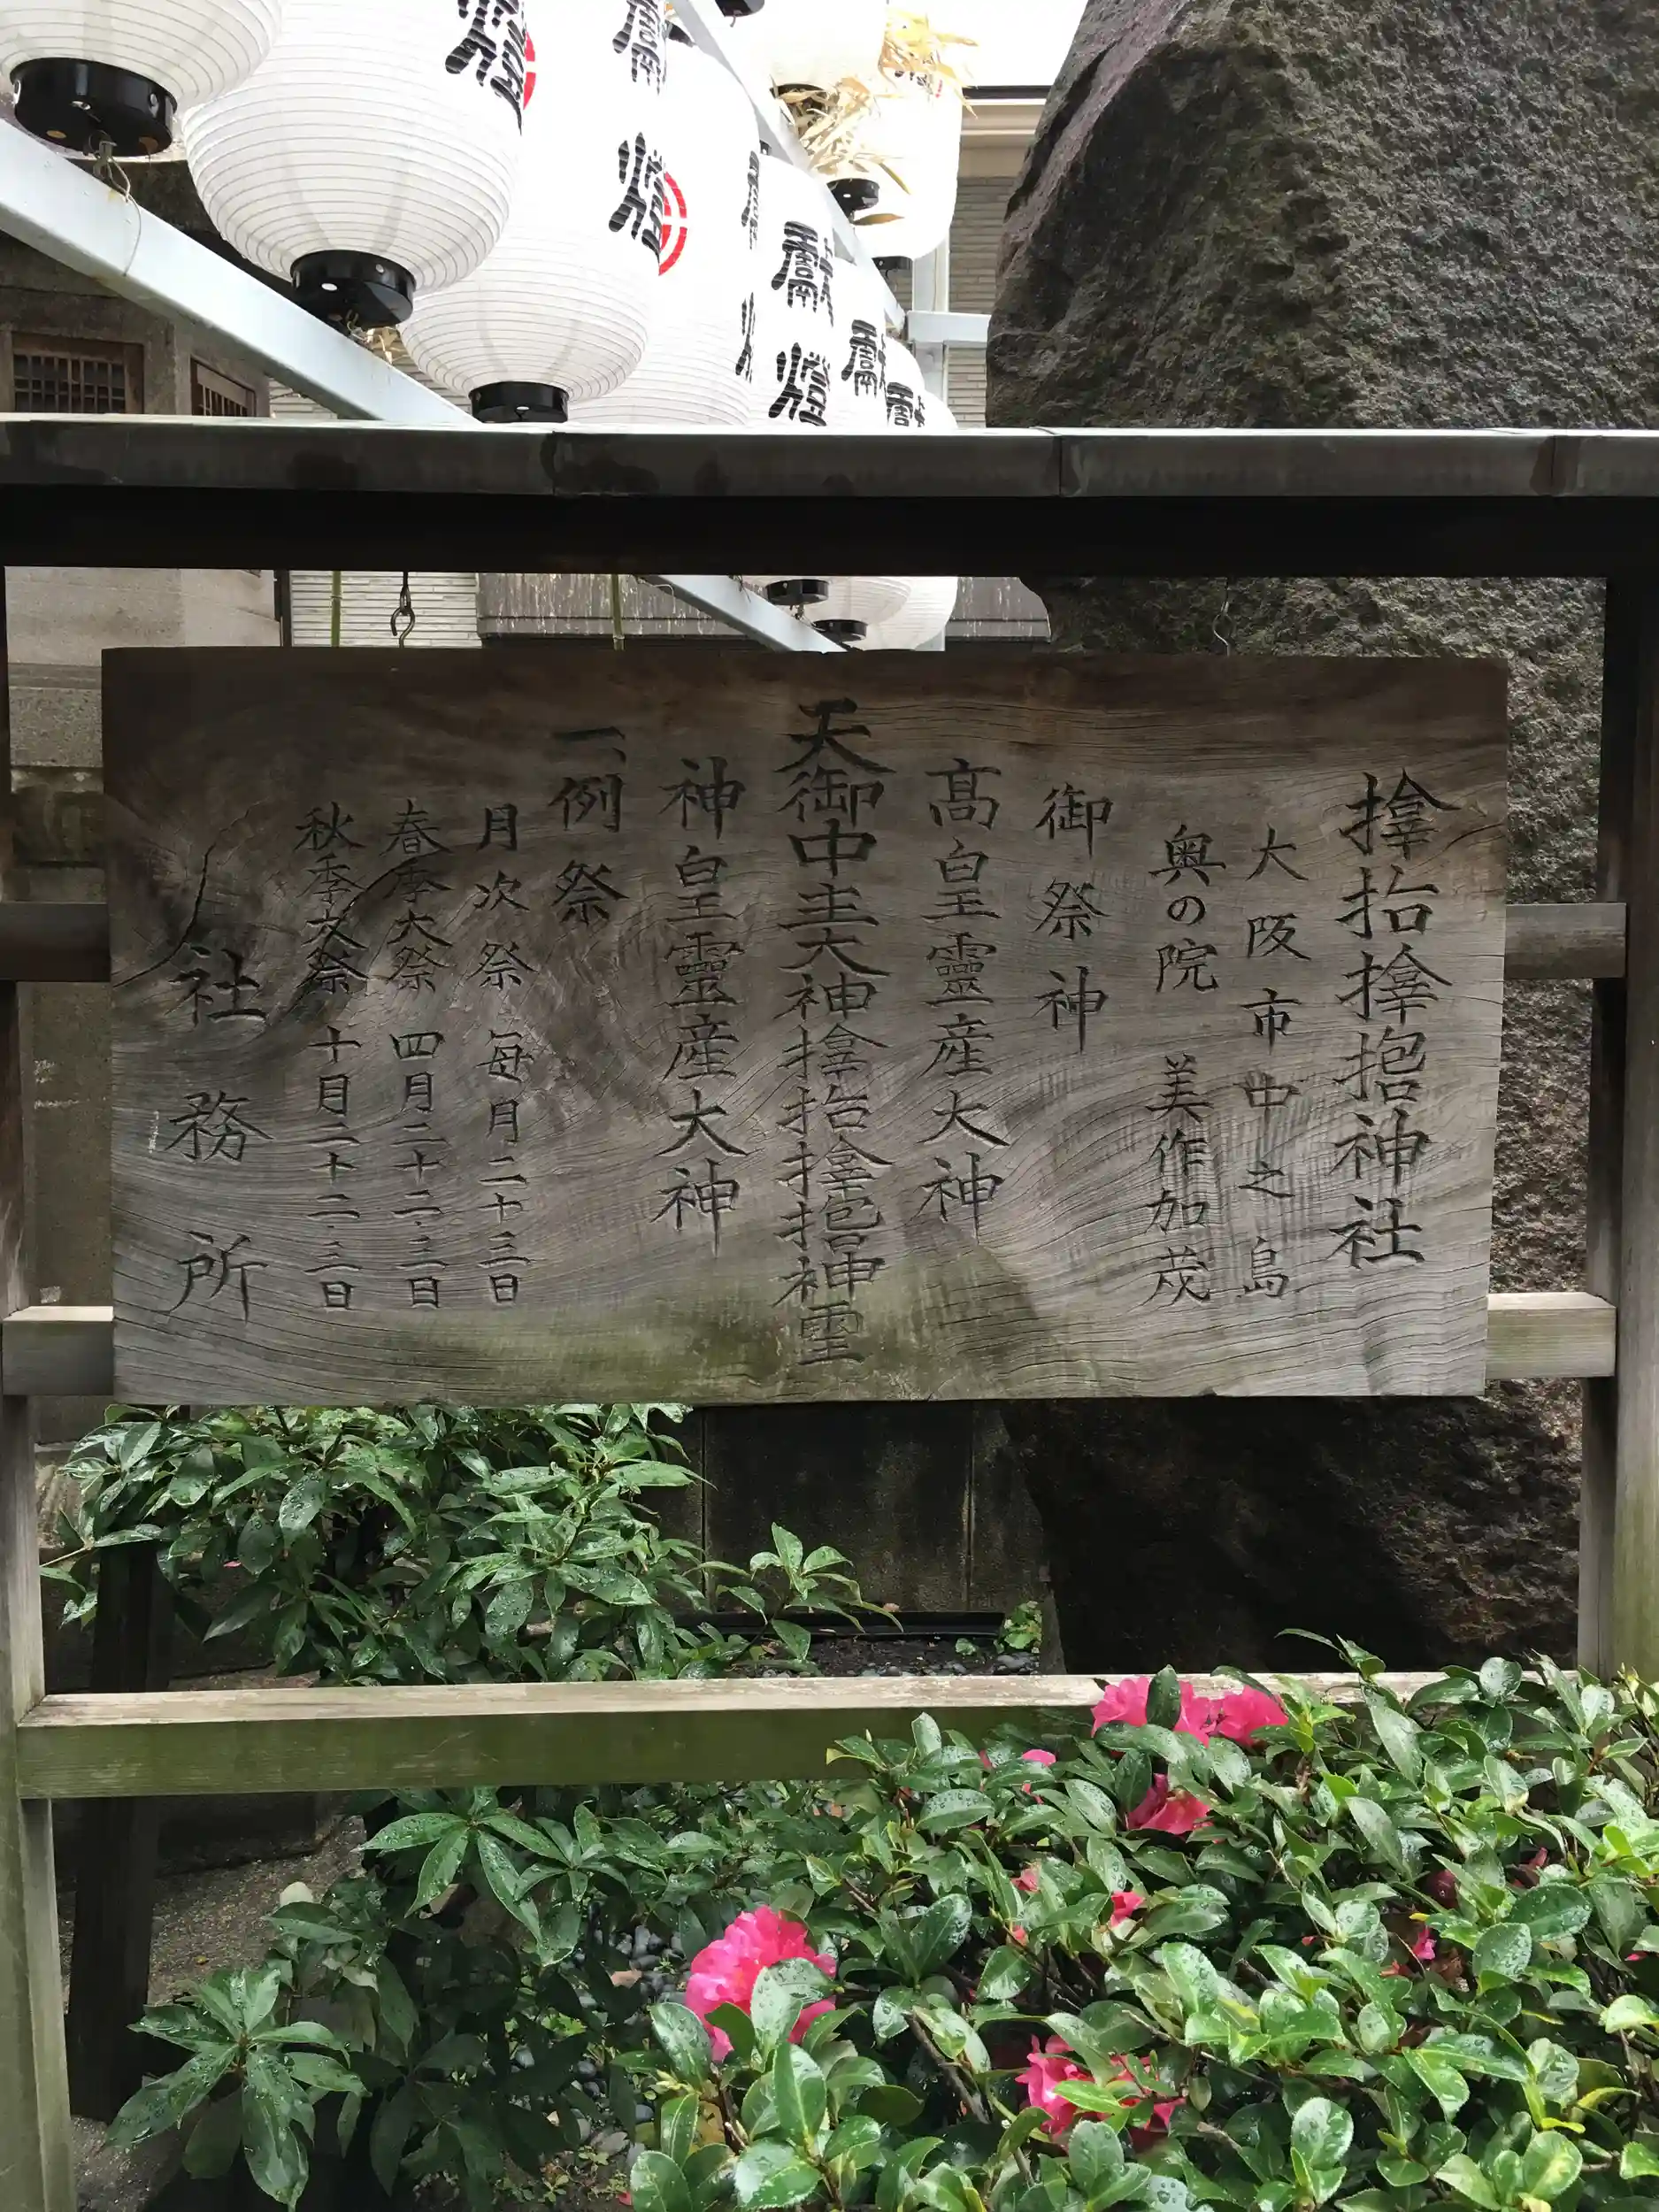 獻燈
𪮷抬𪮷𪮇神社
大阪市中之島
奥の院 美作加茂
御祭神
髙皇靈産大神
天御中主大神𪮷抬𪮷𪮇神霊
神皇靈産大神
一、例祭
月次祭 毎月二十三日
春季大祭 四月二十二・三日
秋季大祭 十月二十二・三日
社務所